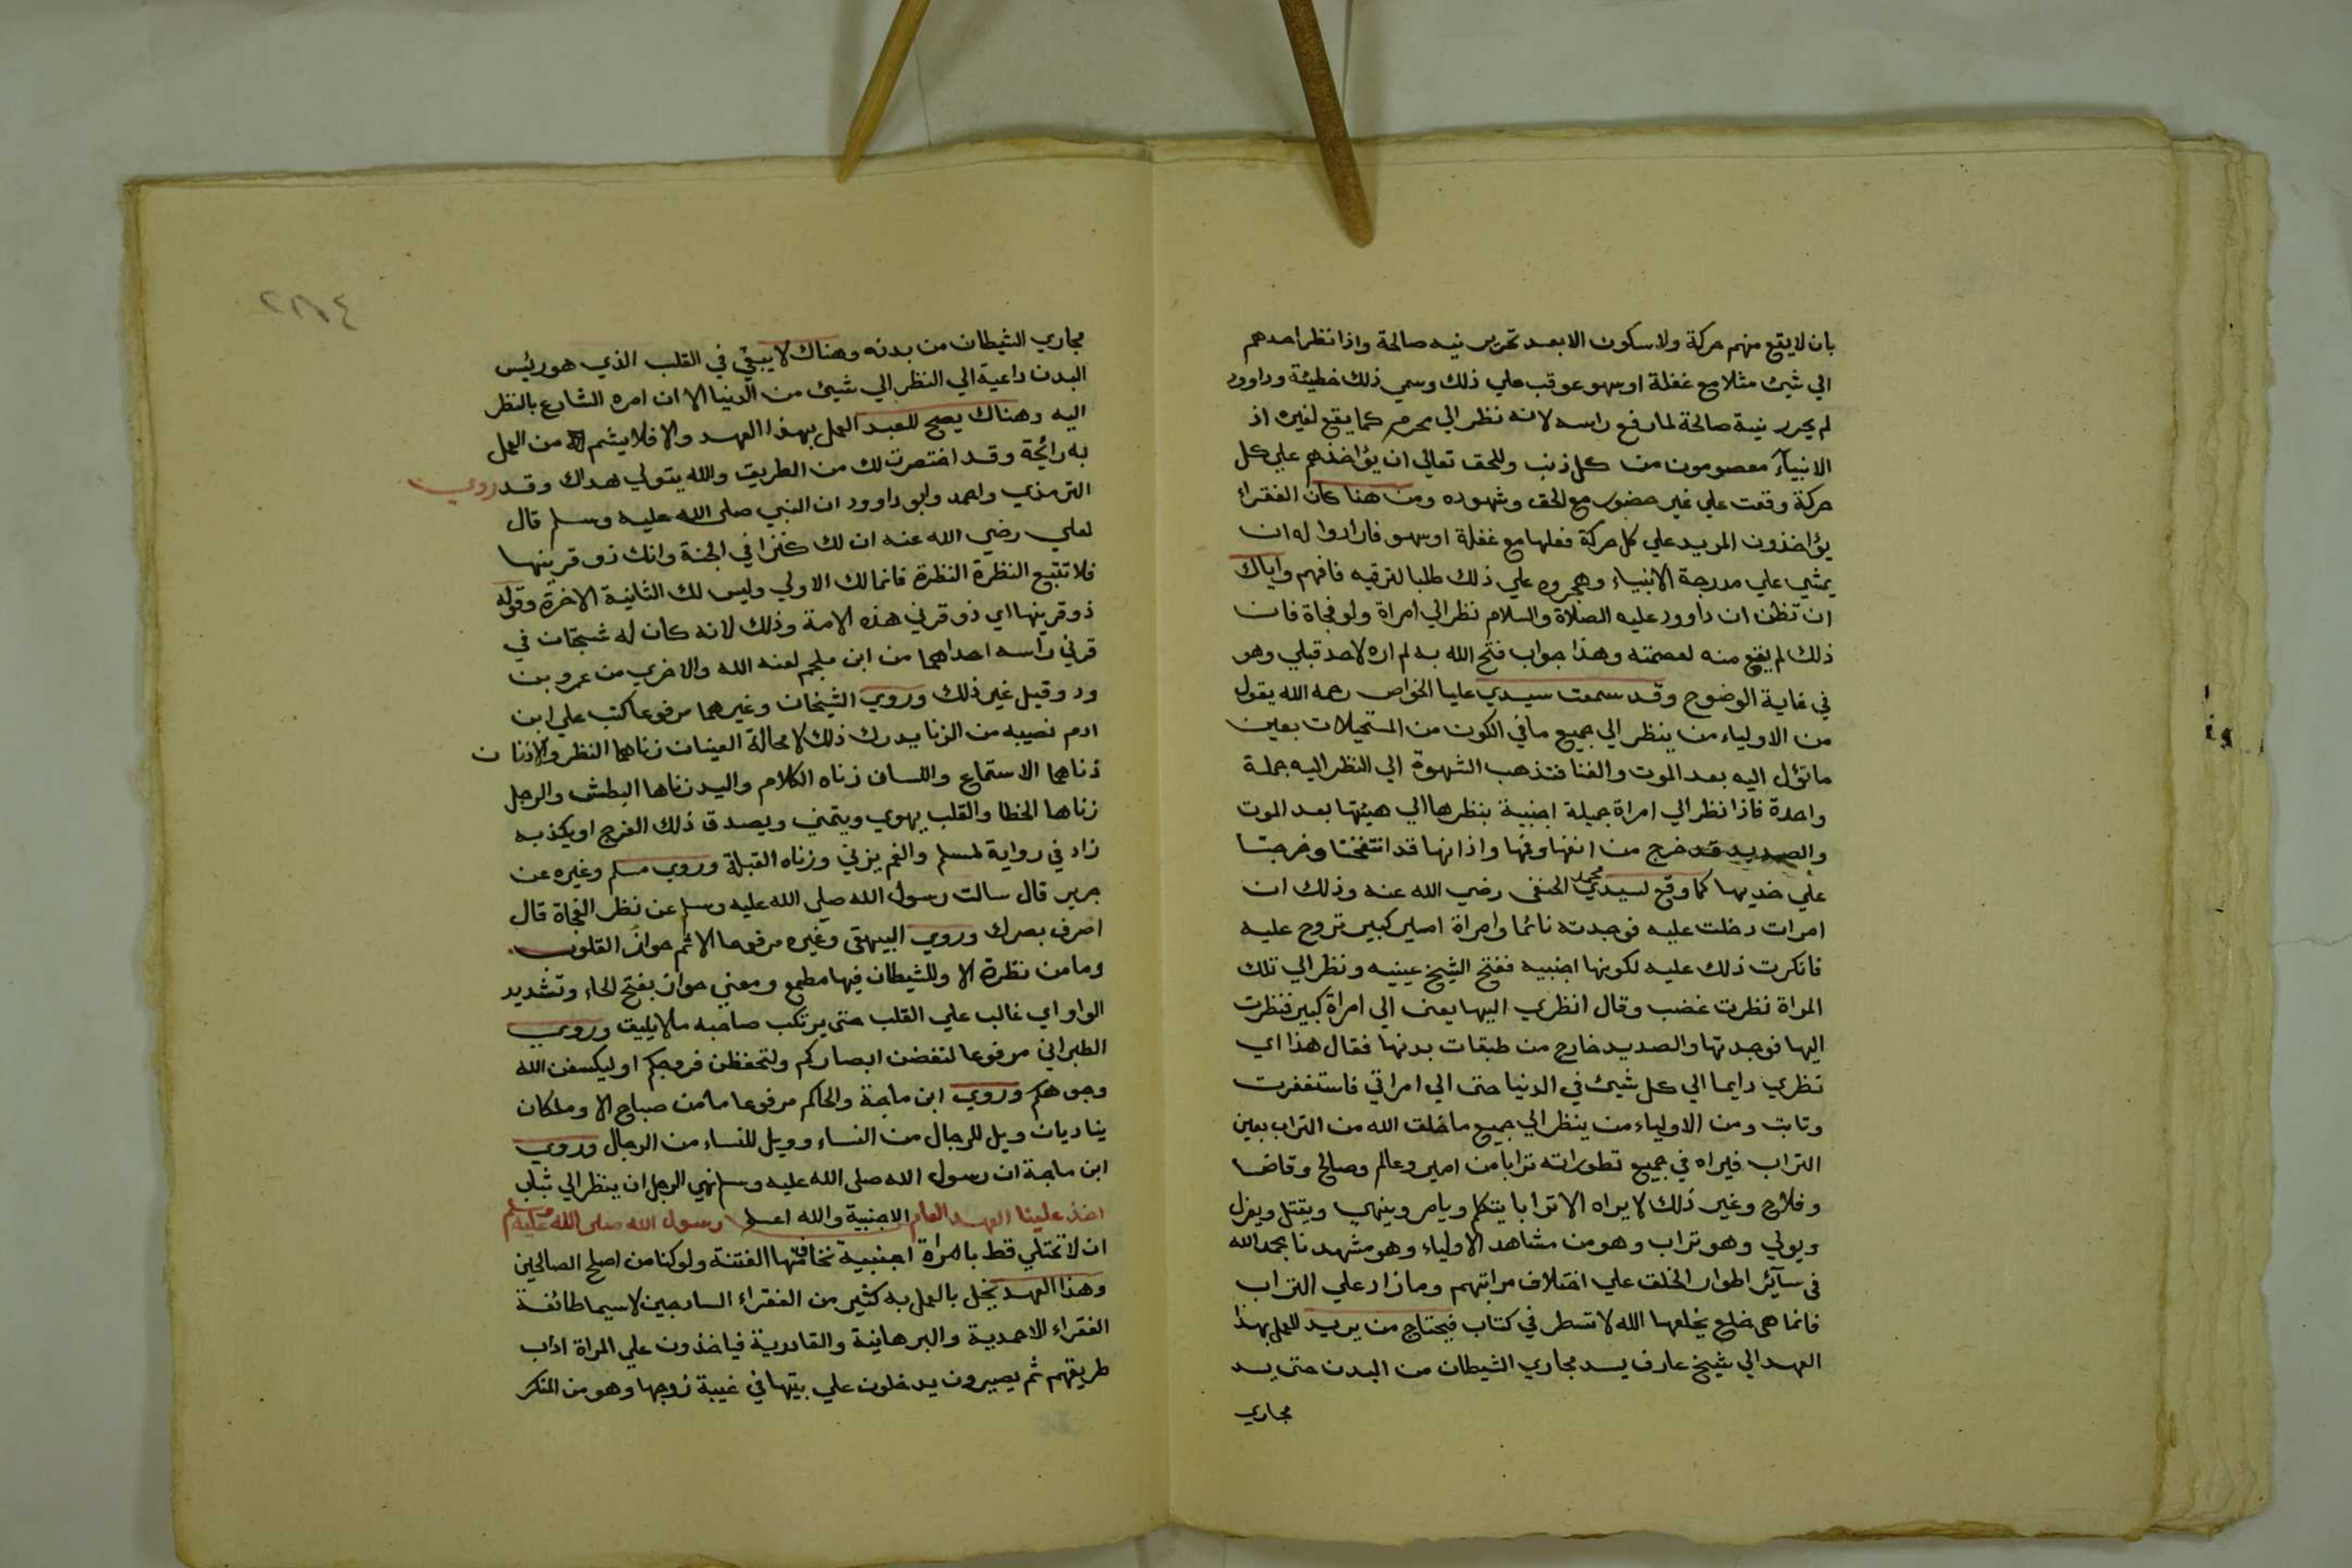 بان لا يقع منهم حركة ولا سكون الا بعد تحرير نيه صالحة واذا نظر احدهم
الي شيئ مثلا مع غفلة او سهو عوقب علي ذلك وسمي ذلك خطيئة وداوود
لم يحرر نية صالحة لما رفع راسه لانه نظر الي محرم كما يقع لغيره اذ
الانبيآء معصومون من كل ذنب وللحق تعالي ان يؤاخذهم علي كل
حركة وقعت علي غير حضور مع الحق وشهوده ومن هنا كان الفقراء
يؤاخذون المريد علي كل حركة فعلها مع غفلة او سهو فارادوا له ان
يمشي علي مدرجة الانبياء وهجروه علي ذلك طلبا لترقيه فافهم واياك
ان تظن ان داوود عليه الصلاة والسلام نظر الي امراة ولو فجاة فان
ذلك لم يقع منه لعصمته وهذا جواب فتح الله به لم اره لاحد قبلي وهو
في غاية الوضوح وقد سمعت سيدي عليا الخواص رحمه الله يقول
من الاولياء من ينظر الي جميع ما في الكون من المستحيلات بعين
ما تؤل اليه بعد الموت والفنا فتذهب الشهوة الي النظر اليه جملة
واحدة فاذا نظر الي امراة جميلة اجنبية ينظرها الي هيئتها بعد الموت
والصديد قد خرج من انفها وفمها واذانها قد انتفختا وخرجتا
علي خديها كما وقع لسيدي محمد الحنفي رضي الله عنه وذلك ان
امرات دخلت عليه فوجدته نائما وامراة امير كبير تروح عليه
فانكرت ذلك عليه لكونها اجنبيه ففتح الشيخ عينيه ونظر الي تلك
المراة نظرت غضب وقال انظري اليها يعني الي امراة كبير فنظرت
اليها فوجدتها والصديد خارج من طبقات بدنها فقال هذا اي
نظري دايما الي كل شيئ في الدنيا حتى الي امراتي فاستغفرت
وتابت ومن الاولياء من ينظر الي جميع ما خلق الله من التراب بعين
التراب فيراه في جميع تطوراته ترابا من امير وعالم وصالح وقاض
وفلاح وغير ذلك لا يراه الا ترابا يتكلم ويامر وينهي ويقتل ويعزل
ويولي وهو تراب وهو من مشاهد الاولياء وهو مشهدنا بحمد الله
في سآئر اطوار الخلق علي اختلاف مراتبهم وما زاد علي التراب
فانما هي خلع يخلعها الله لا تسطر في كتاب فيحتاج من يريد للعمل بهذا
العهد الي شيخ عارف يسد مجاري الشيطان من البدن حتى يسد
مجاري
مجاري الشيطان من بدنه وهناك لا يبقي في القلب الذي هو رئيس
البدن داعية الي النظر الي شيئ من الدنيا الا ان امره الشارع بالنظر
اليه وهناك يصح للعبد العمل بهذا العهد والا فلا يشم من العمل
به رائحة وقد اختصرت لك من الطريق والله يتولي هداك وقد روي
الترمذي واحمد وابو داوود ان النبي صلى الله عليه وسلم قال
لعلي رضي الله عنه ان لك كنزا في الجنة وانك ذو قرينها
فلا تتبع النظرة النظرة فانما لك الاولي وليس لك الثانية الاخرة وقوله
ذو قرينها اي ذو قرني هذه الامة وذلك لانه كان له شجتان في
قرني راسه احداهما من ابن ملجم لعنه الله والاخري من عمرو بن
ود وقيل غير ذلك وروي الشيخان وغيرهما مرفوعا كتب علي ابن
ادم نصيبه من الزنا يدرك ذلك لا محالة العينان زناهما النظر والاذنان
زناهما الاستماع واللسان زناه الكلام واليد زناها البطش والرجل
زناها الخطا والقلب يهوي ويتمني ويصدق ذلك الفرج او يكذبه
زاد في رواية لمسلم والفم يزني وزناه القبلة وروي مسلم وغيره عن
جرير قال سالت رسول الله صلي الله عليه وسلم عن نظر الفجاة قال
اصرف بصرك وروي البيهقى وغيره مرفوعا الاثم حواز القلوب
وما من نظرة الا وللشيطان فيها مطمع ومعني حواز بفتح الحاء وتشديد
الواو اي غالب علي القلب حتى يرتكب صاحبه ما لا يليق وروي
الطبراني مرفوعا لتغضن ابصاركم ولتحفظن فروجكم او ليكسفن الله
وجوهكم وروي ابن ماجة والحاكم مرفوعا ما من صباح الا وملكان
يناديان ويل للرجال من النساء وويل للنساء من الرجال وروي
ابن ماجة ان رسول الله صلى الله عليه وسلم نهي الرجل ان ينظر الي ثياب
الاجنبية والله اعلم اخذ علينا العهد العام رسول الله صلى الله عليه وسلم
ان لا نختلي قط بامراة اجنبية نخاف منها الفتنة ولو كنا من اصلح الصالحين
وهذا العهد يخل بالعمل به كثير من الفقراء السارحين لا سيما طائفة
الفقراء الاحمدية والبرهانية والقادرية فياخذون علي المراة اداب
طريقهم ثم يصيرون يدخلون علي بيتها في غيبة زوجها وهو من المنكر